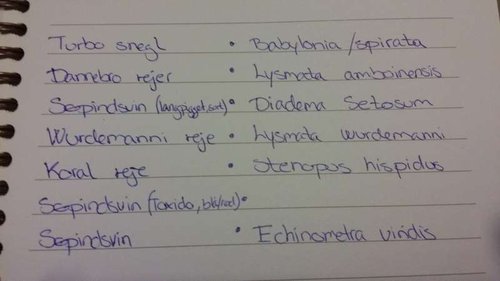 Turbo snegl • Babylonia/spirata
Dannebro rejer • Lysmata amboinensis
Søpindsvin (langpigget, sort) • Diadema Setosum
Wurdemanni reje • Lysmata wurdemanni
Koral reje • Stenopus hispidus
Søpindsvin (Toxido, blå/rød) •
Søpindsvin • Echinometra viridis